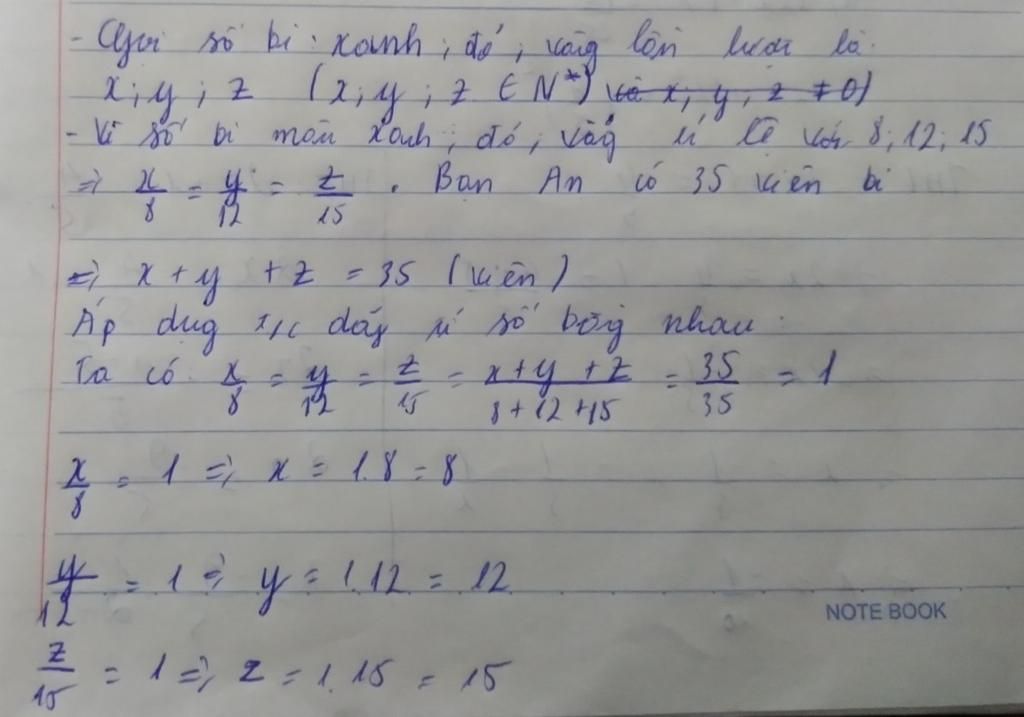 - Gọi số bi: xanh; đỏ; vàng lần lượt là
x; y; z (x; y; z ∈ N*) và x, y, z ≠ 0)
- Vì số bi màu xanh; đỏ; vàg tỉ lệ với 8; 12; 15
=> x/8 = y/12 = z/15 . Bạn An có 35 viên bi
=> x + y + z = 35 (viên)
Áp dụg t/c dãy tỉ số bằg nhau:
Ta có x/8 = y/12 = z/15 = x+y+z/8+12+15 = 35/35 = 1
x/8 = 1 => x = 1.8 = 8
y/12 = 1 => y = 1.12 = 12
NOTE BOOK
z/15 = 1 => z = 1.15 = 15